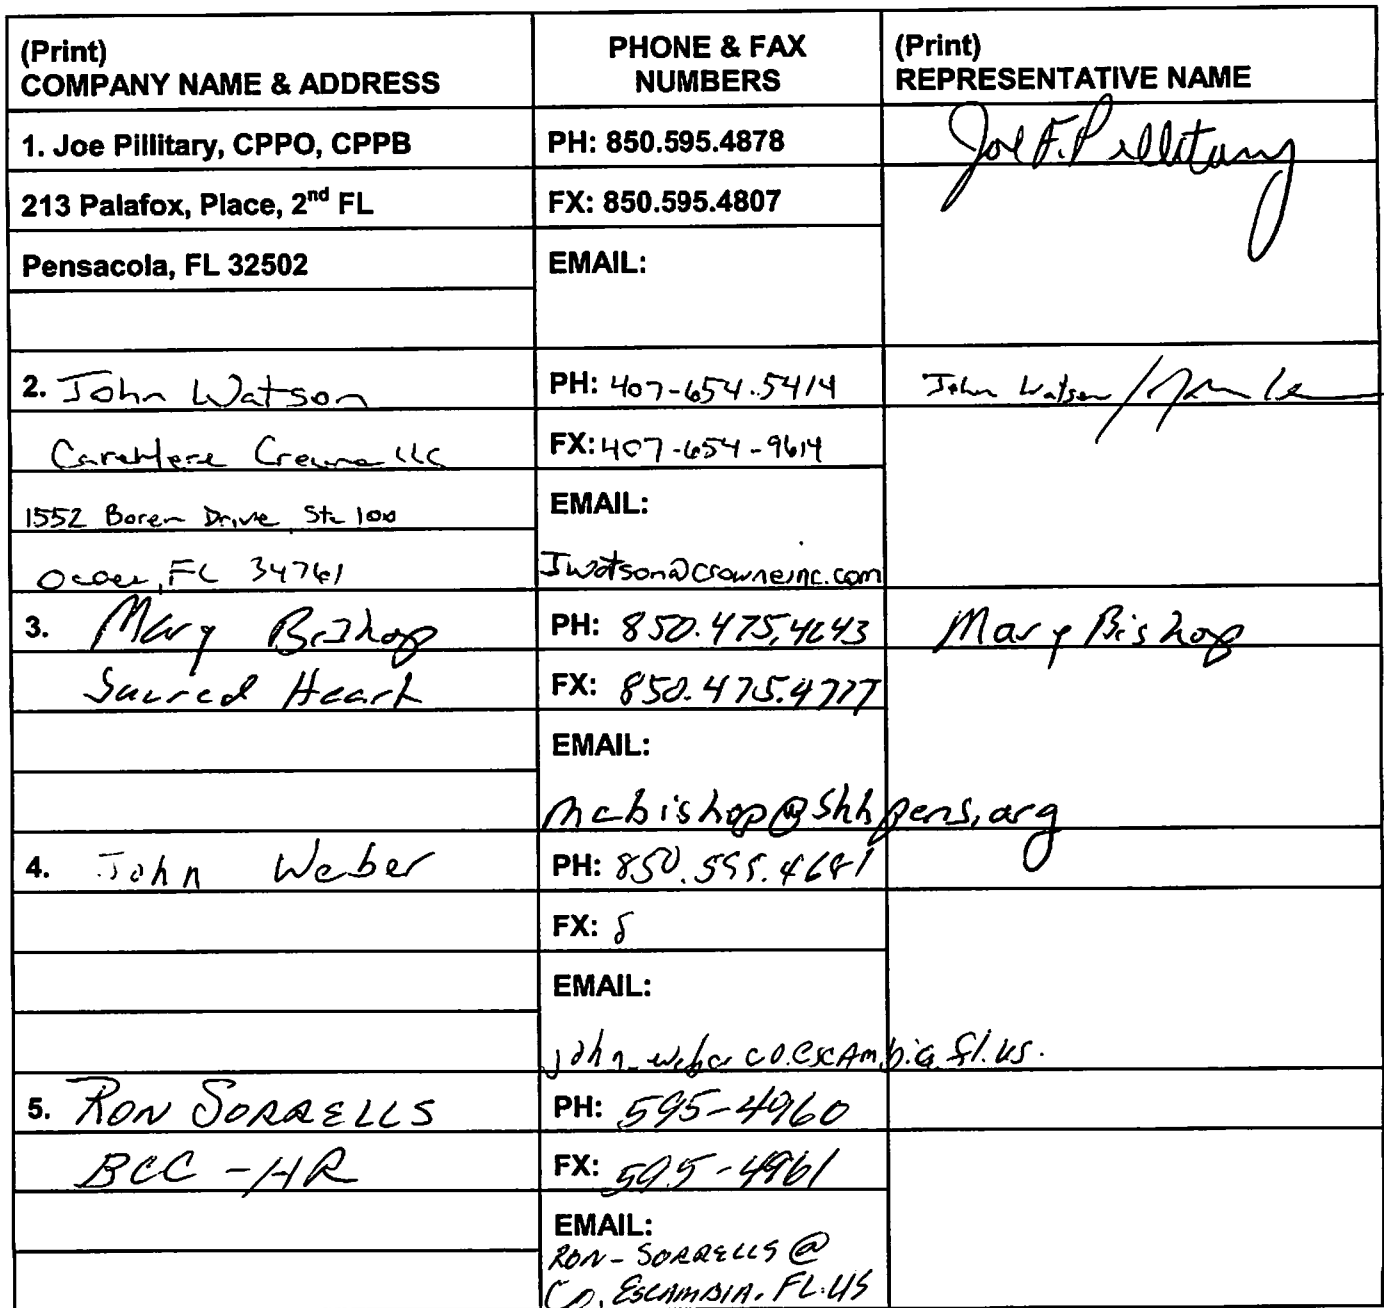 (Print)
COMPANY NAME & ADDRESS
PHONE & FAX
NUMBERS
(Print)
REPRESENTATIVE NAME
1. Joe Pillitary, CPPO, CPPB
PH: 850.595.4878
Joe F. Pillitary
213 Palafox, Place, 2nd FL
FX: 850.595.4807
Pensacola, FL 32502
EMAIL:
2. John Watson
PH: 407-654.5414
John Watson /
CareHere Crowne LLC
FX: 407-654-9614
1552 Boren Drive, Ste 100
EMAIL:
Ocoee, FL 34761
Jwatson@crowneinc.com
3. Mary Bishop
PH: 850.475.4643
Mary Bishop
Sacred Heart
FX: 850.475.4777
EMAIL:
mcbishop@shhpens.org
4. John Weber
PH: 850.595.4681
FX:
EMAIL:
john_weber co.escambia.fl.us.
5. RON SORRELLS
PH: 595-4960
BCC - HR
FX: 595-4961
EMAIL:
RON-SORRELLS @
CO. ESCAMBIA. FL.US